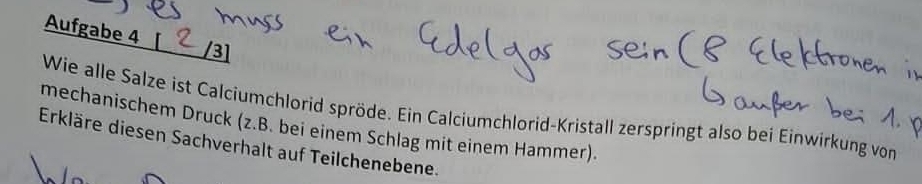 es muss ein Edelgas sein (8 Elektronen in
↳ außer bei 1.
Aufgabe 4 [ 2 /3]
Wie alle Salze ist Calciumchlorid spröde. Ein Calciumchlorid-Kristall zerspringt also bei Einwirkung von
mechanischem Druck (z.B. bei einem Schlag mit einem Hammer).
Erkläre diesen Sachverhalt auf Teilchenebene.